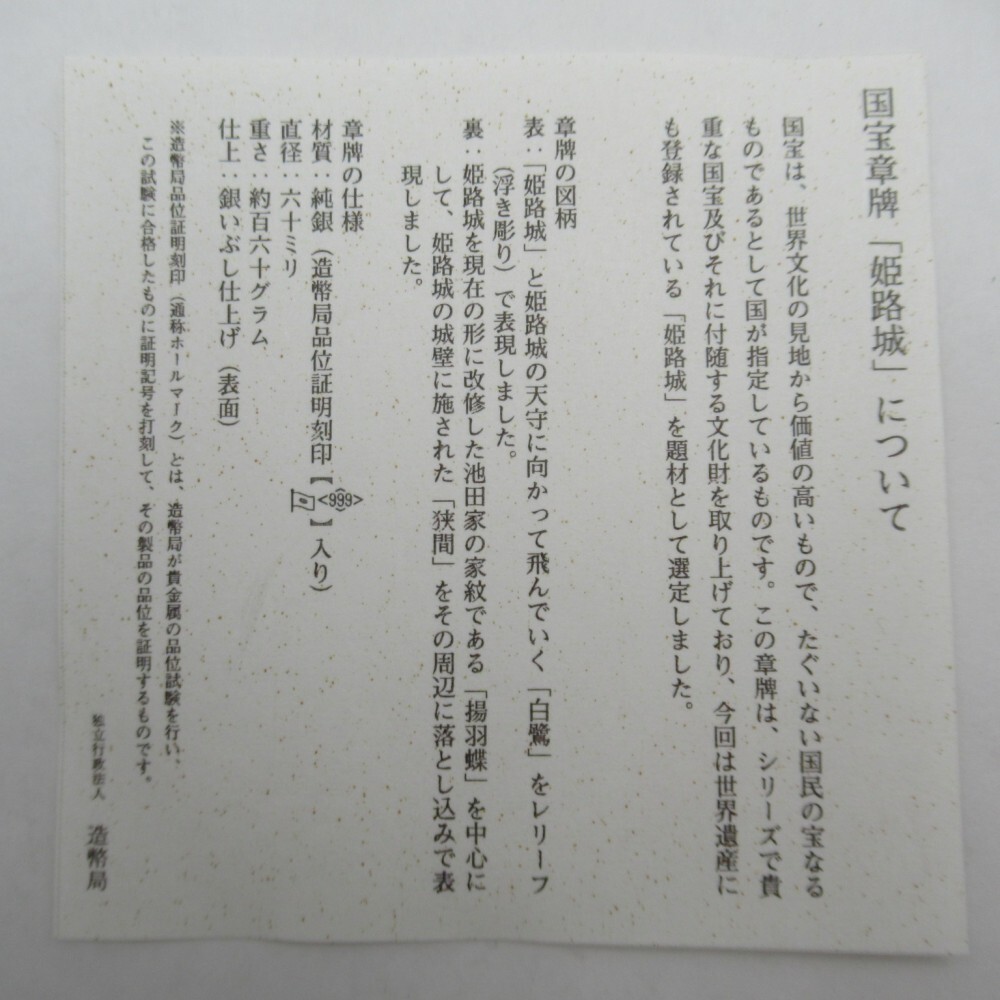 国宝章牌「姫路城」について
国宝は、世界文化の見地から価値の高いもので、たぐいない国民の宝なる
ものであるとして国が指定しているものです。この章牌は、シリーズで貴
重な国宝及びそれに付随する文化財を取り上げており、今回は世界遺産に
も登録されている「姫路城」を題材として選定しました。
章牌の図柄
表：「姫路城」と姫路城の天守に向かって飛んでいく「白鷺」をレリーフ
（浮き彫り）で表現しました。
裏：姫路城を現在の形に改修した池田家の家紋である「揚羽蝶」を中心に
して、姫路城の城壁に施された「狭間」をその周辺に落とし込みで表
現しました。
章牌の仕様
材質：純銀（造幣局品位証明刻印【<999>】入り）
直径：六十ミリ
重さ：約百六十グラム
仕上：銀いぶし仕上げ（表面）
※造幣局品位証明刻印（通称ホールマーク）とは、造幣局が貴金属の品位試験を行い、
この試験に合格したものに証明記号を打刻して、その製品の品位を証明するものです。
独立行政法人 造幣局